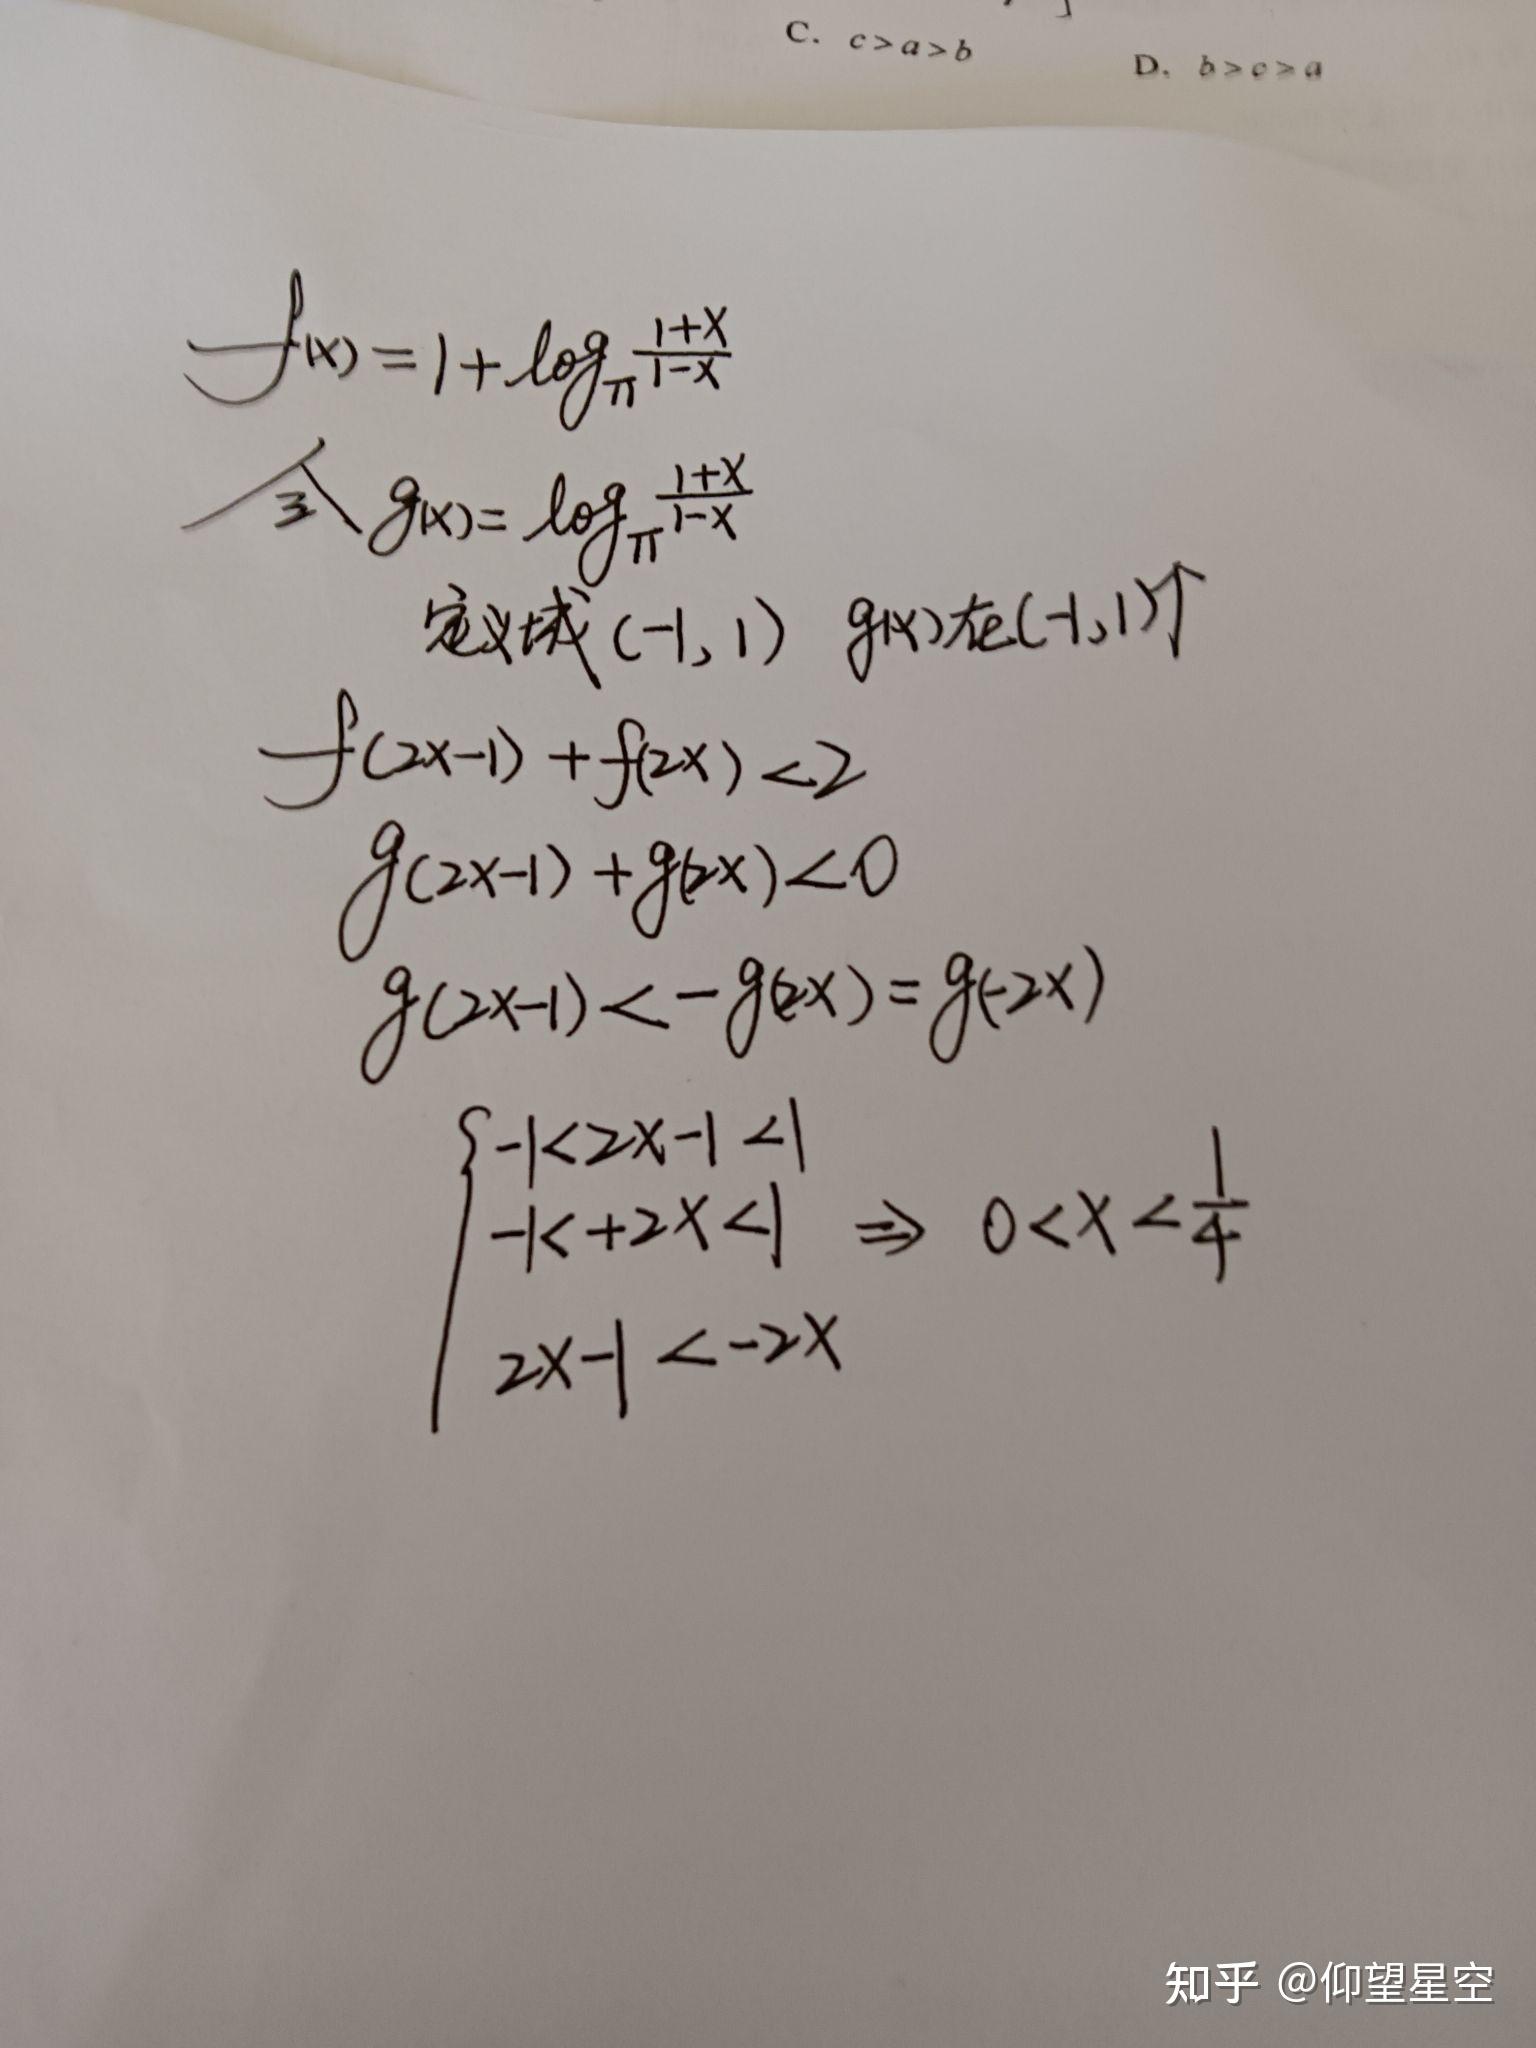 C. c>a>b
D. b>c>a
f(x)=1+log_π (1+x)/(1-x)
令 g(x)=log_π (1+x)/(1-x)
定义域(-1,1) g(x)在(-1,1)↑
f(2x-1)+f(2x)<2
g(2x-1)+g(2x)<0
g(2x-1)<-g(2x)=g(-2x)
{-1<2x-1<1
-1<+2x<1 ⇒ 0<x<1/4
2x-1<-2x
知乎 @仰望星空